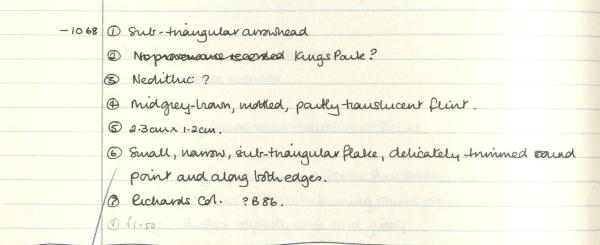 -1068 ① Sub-triangular arrowhead
② No provenance recorded Kings Park?
③ Neolithic?
④ Midgrey-brown, mottled, partly translucent flint.
⑤ 2.3cm x 1.2cm.
⑥ Small, narrow, sub-triangular flake, delicately trimmed round
point and along both edges.
⑦ Richards Col. ?B86.
⑧ £1-50